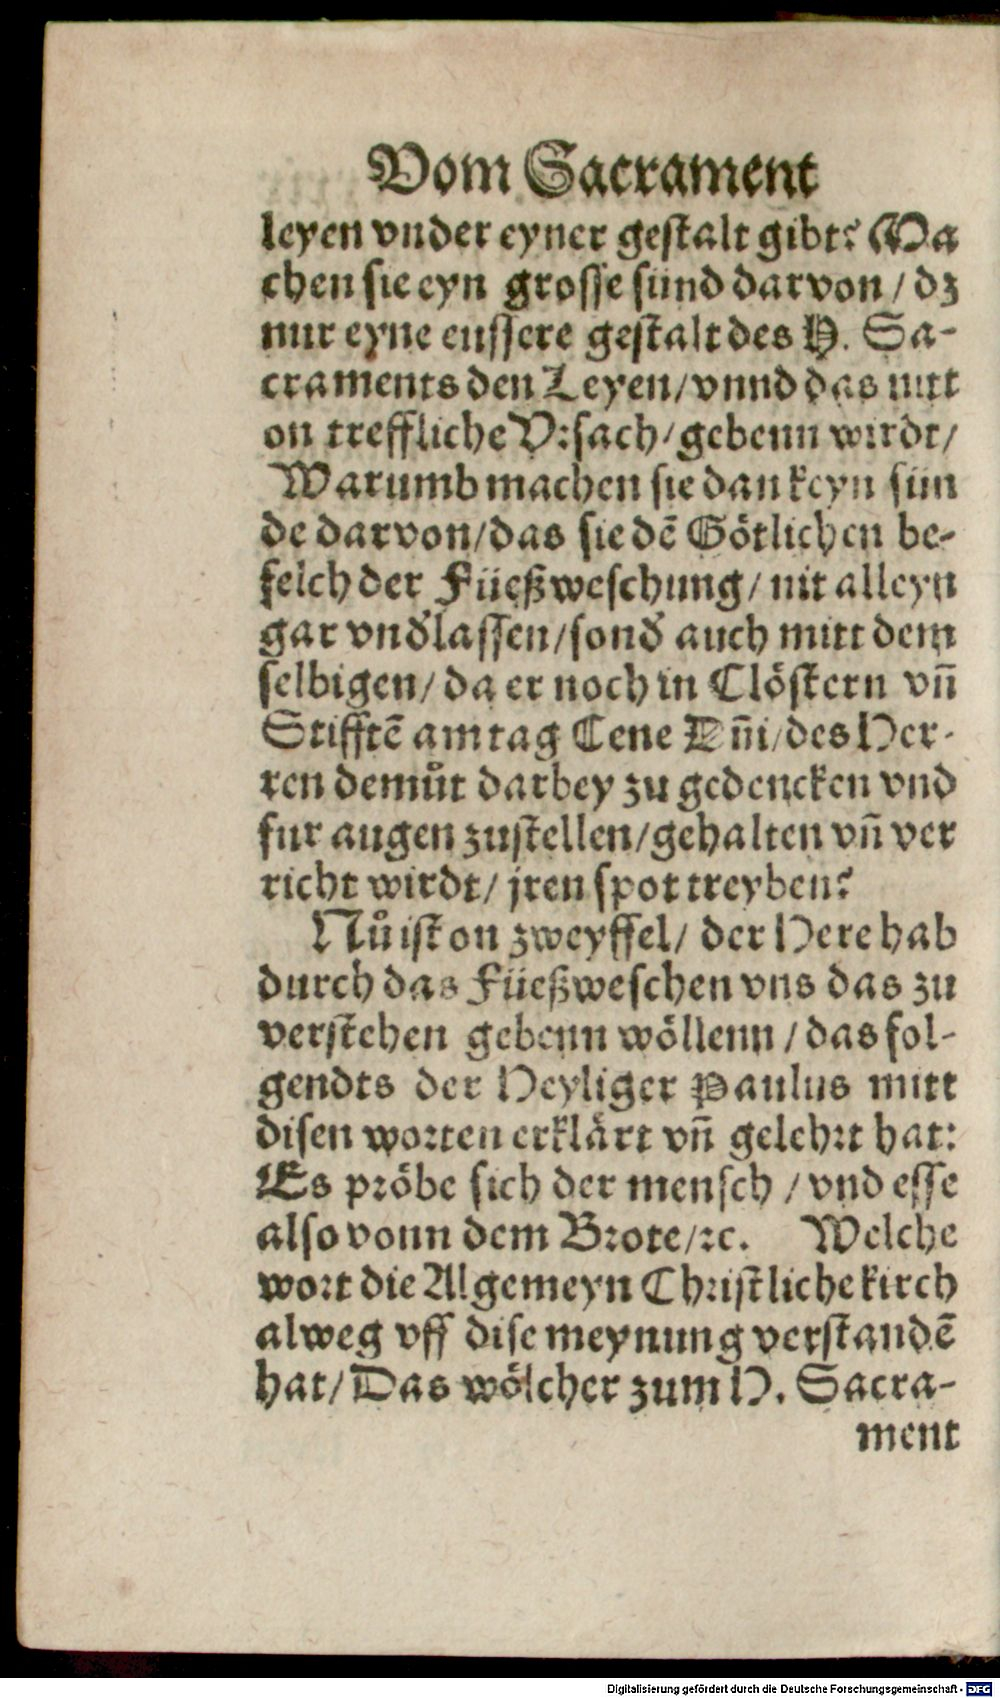 Vom Sacrament
leyen vnder eyner gestalt gibt? Ma
chen sie eyn grosse sünd darvon / dz
nur eyne eussere gestalt des H. Sa-
craments den Leyen/ vnnd das nitt
on treffliche Vrsach/ gebenn wirdt/
Warumb machen sie dan keyn sün
de darvon/ das sie dē Götlichen be-
felch der Füeßweschung/ nit alleyn
gar vnd̕lassen/ sond̕ auch mitt dem
selbigen/ da er noch in Clöstern vn̄
Stifftē am tag Cene Dn̄i/ des Her-
ren demůt darbey zu gedencken vnd
fur augen zustellen/ gehalten vn̄ ver
richt wirdt/ jren spot treyben?
Nů ist on zweyffel/ der Here hab
durch das Füeßweschen vns das zu
verstehen gebenn wöllenn / das fol-
gendts der Heyliger Paulus mitt
disen worten erklärt vn̄ gelehrt hat:
Es pröbe sich der mensch / vnd esse
also vonn dem Brote/ ꝛc. Welche
wort die Algemeyn Christliche kirch
alweg vff dise meynung verstandē
hat/ Das wölcher zum H. Sacra-
ment
Digitalisierung gefördert durch die Deutsche Forschungsgemeinschaft - DFG